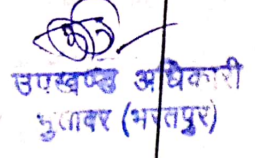 उपखण्ड अधिकारी
भुसावर (भरतपुर)